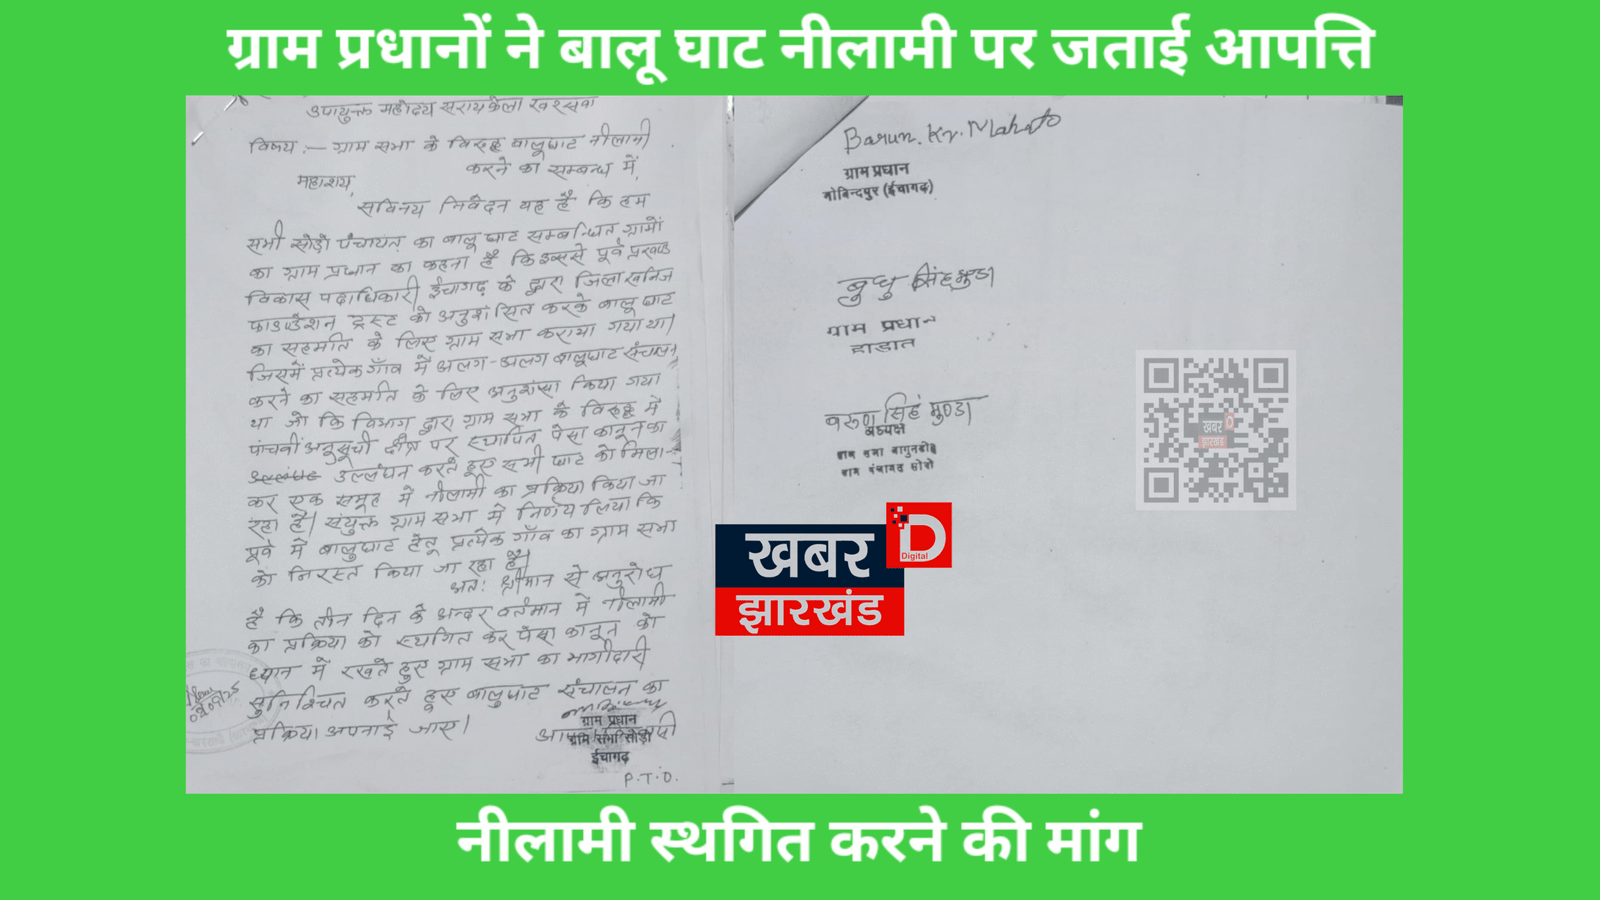 ग्राम प्रधानों ने बालू घाट नीलामी पर जताई आपत्ति
उपायुक्त महोदय सरायकेला खरसवा
विषय :— ग्राम सभा के विरुद्ध बालूघाट नीलामी
करने का सम्बन्ध में,
महाशय,
सविनय निवेदन यह है कि हम
सभी सोड़ो पंचायत का बालू घाट सम्बन्धित ग्रामों
का ग्राम प्रधान का कहना है कि इससे पूर्व प्रखण्ड
विकास पदाधिकारी, ईचागढ़ के द्वारा जिला खनिज
फाउण्डेशन ट्रस्ट को अनुशंसित करके बालू घाट
का सहमति के लिए ग्राम सभा कराया गया था।
जिसमें प्रत्येक गाँव में अलग-अलग बालूघाट संचालन
करने का सहमति के लिए अनुशंसा किया गया
था जो कि विभाग द्वारा ग्राम सभा के विरुद्ध में
पांचवीं अनुसूची क्षेत्र पर स्थापित पेसा कानून का
उल्लंघन करते हुए सभी घाट को मिला-
कर एक समूह में नीलामी का प्रक्रिया किया जा
रहा है। संयुक्त ग्राम सभा में निर्णय लिया कि
पूर्व में बालुघाट हेतू प्रत्येक गाँव का ग्राम सभा
को निरस्त किया जा रहा है।
अतः श्रीमान से अनुरोध
है कि तीन दिन के अन्दर वर्तमान में नीलामी
का प्रक्रिया को स्थगित कर पेसा कानून को
ध्यान में रखते हुए ग्राम सभा का भागीदारी
सुनिश्चित करते हुए बालुघाट संचालन का
प्रक्रिया अपनाई जाए।
ग्राम प्रधान
ग्राम सभा सोड़ो
ईचागढ़
P.T.O.
Barun. Kr. Mahato
ग्राम प्रधान
गोबिन्दपुर (ईचागढ़)
बुधु सिंह मुण्डा
ग्राम प्रधान
हाड़ात
वरुण सिंह मुण्डा
अध्यक्ष
ग्राम सभा बागुनडीह
ग्राम पंचायत सोड़ो
खबर
झारखंड
D
Digital
खबर D
झारखंड
नीलामी स्थगित करने की मांग